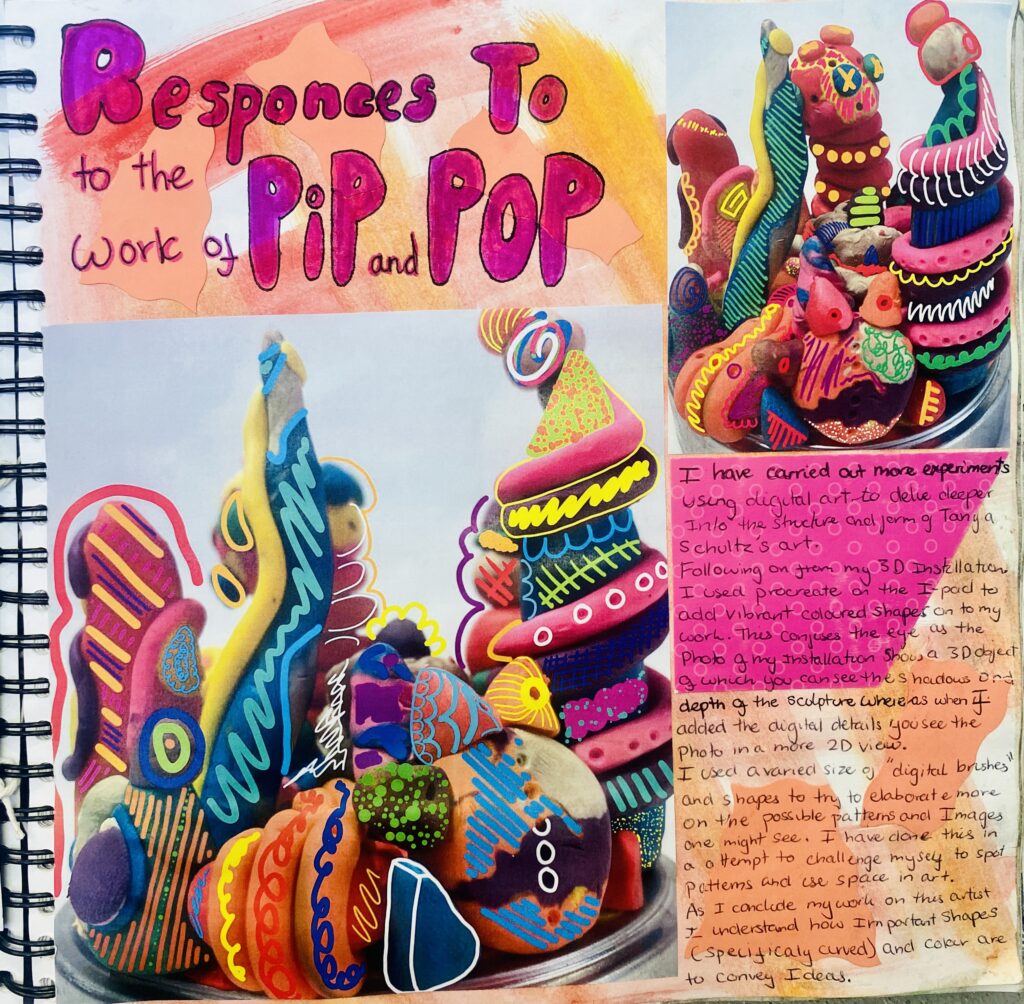 Responces To
to the
work of PiP and POP
I have carried out more experiments
using digital art to delve deeper
Into the structure and form of Tanya
Schultz's art.
Following on from my 3D Installation
I used procreate on the I-pad to
add vibrant colored shapes on to my
work. This confuses the eye as the
Photo of my Installation show a 3D object
of which you can see the shadows and
depth of the sculpture where as when I
added the digital details you see the
Photo in a more 2D view.
I used a varied size of "digital brushes"
and shapes to try to elaborate more
on the possible patterns and Images
one might see. I have done this in
a attempt to challenge myself to spot
patterns and use space in art.
As I conclude my work on this artist
I understand how Important shapes
(specificaly curved) and colour are
to convey Ideas.